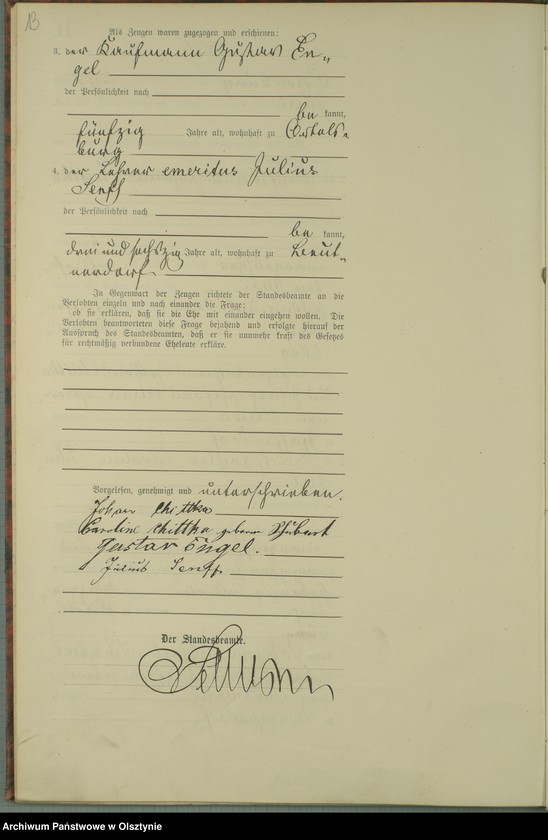 13
Als Zeugen waren zugezogen und erschienen:
3. der Kaufmann Gustav En-
gel
der Persönlichkeit nach
be kannt,
fünfzig Jahre alt, wohnhaft zu Ortels-
burg
4. der Lehrer emeritus Julius
Senff
der Persönlichkeit nach
be kannt,
drei und sechszig Jahre alt, wohnhaft zu Beut-
nerdorf
In Gegenwart der Zeugen richtete der Standesbeamte an die
Verlobten einzeln und nach einander die Frage:
ob sie erklären, daß sie die Ehe mit einander eingehen wollen. Die
Verlobten beantworteten diese Frage bejahend und erfolgte hierauf der
Ausspruch des Standesbeamten, daß er sie nunmehr kraft des Gesetzes
für rechtmäßig verbundene Eheleute erkläre.
Vorgelesen, genehmigt und unterschrieben.
Johan Chittka
Caroline Chittka geborene Schubert
Gustav Engel.
Julius Senff
Der Standesbeamte.
Archiwum Państwowe w Olsztynie